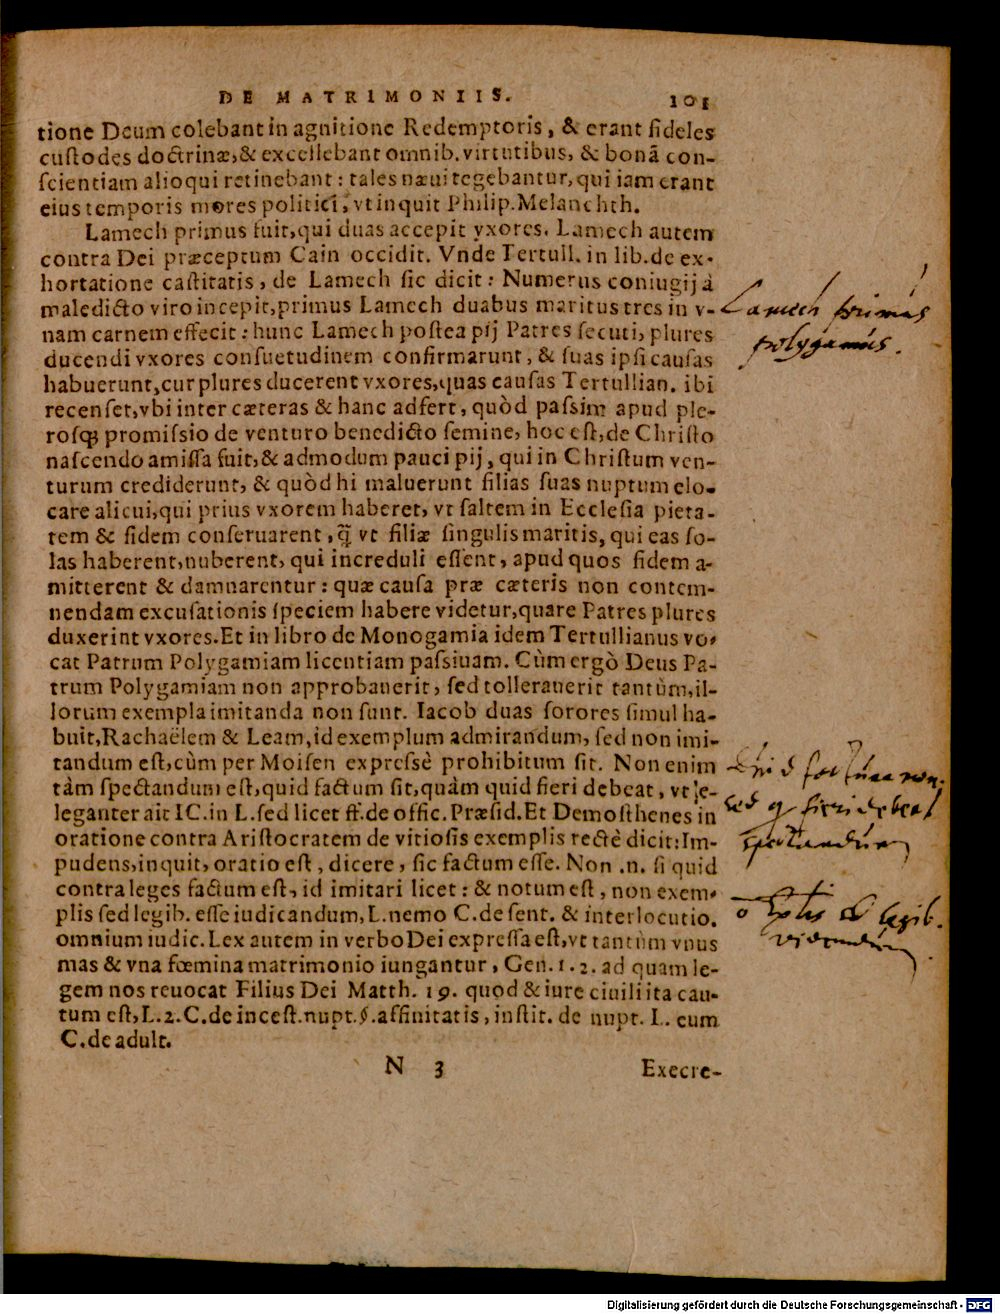 DE MATRIMONIIS. 101
tione Deum colebant in agnitione Redemptoris, & erant fideles
custodes doctrinæ, & excellebant omnib. virtutibus, & bonā con-
scientiam alioqui retinebant: tales næui tegebantur, qui iam erant
eius temporis mores politici, vt inquit Philip. Melanchth.
Lamech primus fuit, qui duas accepit vxores. Lamech autem
contra Dei præceptum Cain occidit. Vnde Tertull. in lib. de ex-
hortatione castitatis, de Lamech sic dicit: Numerus coniugij à
maledicto viro incepit, primus Lamech duabus maritus tres in v-
nam carnem effecit: hunc Lamech postea pij Patres secuti, plures
ducendi vxores consuetudinem confirmarunt, & suas ipsi causas
habuerunt, cur plures ducerent vxores, quas causas Tertullian. ibi
recenset, vbi inter cæteras & hanc adfert, quòd passim apud ple-
rosq; promissio de venturo benedicto semine, hoc est, de Christo
nascendo amissa fuit, & admodum pauci pij, qui in Christum ven-
turum crediderunt, & quòd hi maluerunt filias suas nuptum elo-
care alicui, qui prius vxorem haberet, vt saltem in Ecclesia pieta-
tem & fidem conseruarent, q̃ vt filiæ singulis maritis, qui eas so-
las haberent, nuberent, qui increduli essent, apud quos fidem a-
mitterent & damnarentur: quæ causa præ cæteris non contem-
nendam excusationis speciem habere videtur, quare Patres plures
duxerint vxores. Et in libro de Monogamia idem Tertullianus vo-
cat Patrum Polygamiam licentiam passiuam. Cùm ergò Deus Pa-
trum Polygamiam non approbauerit, sed tollerauerit tantùm, il-
lorum exempla imitanda non sunt. Iacob duas sorores simul ha-
buit, Rachaëlem & Leam, id exemplum admirandum, sed non imi-
tandum est, cùm per Moisen expressè prohibitum sit. Non enim
tàm spectandum est, quid factum sit, quàm quid fieri debeat, vt e-
leganter ait IC. in L. sed licet ff. de offic. Præsid. Et Demosthenes in
oratione contra Aristocratem de vitiosis exemplis rectè dicit: Im-
pudens, inquit, oratio est, dicere, sic factum esse. Non .n. si quid
contra leges factum est, id imitari licet: & notum est, non exem-
plis sed legib. esse iudicandum, L. nemo C. de sent. & interlocutio.
omnium iudic. Lex autem in verbo Dei expressa est, vt tantùm vnus
mas & vna fœmina matrimonio iungantur, Gen. 1. 2. ad quam le-
gem nos reuocat Filius Dei Matth. 19. quod & iure ciuili ita cau-
tum est, L. 2. C. de incest. nupt. §. affinitatis, instit. de nupt. L. eum
C. de adult.
N 3 Execre-
Lamech primus
polygamus.
factum non
sed fieri debeat
spectandum
legib.
Digitalisierung gefördert durch die Deutsche Forschungsgemeinschaft - DFG